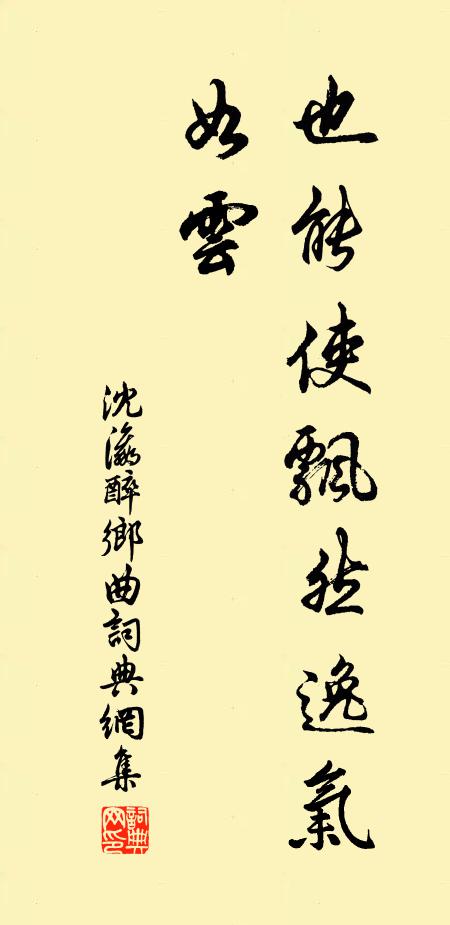 也能使飄然逸氣
如雲
沈瀛醉鄉曲詞典網集
詞典網印